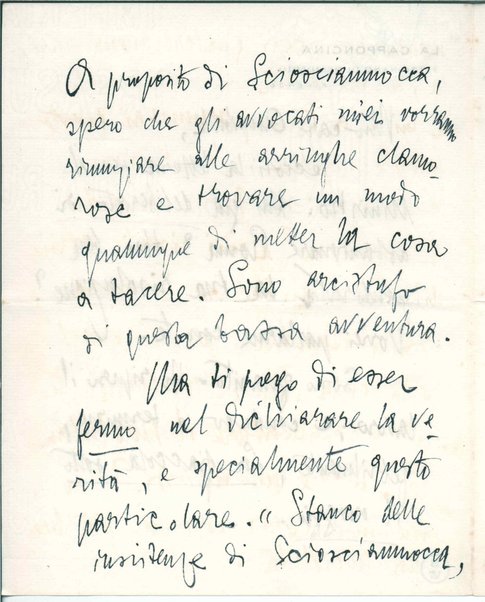 A proposito di Sciosciammocca,
spero che gli avvocati miei vorranno
rinunziare alle arringhe clamo-
rose e trovare un modo
qualunque di metter la cosa
a tacere. Sono arcistufo
di questa bassa avventura.
Ma ti prego di esser
fermo nel dichiarare la ve-
rità, e specialmente questo
particolare. "Stanco delle
insistenze di Sciosciammocca,
LA CAPPONCINA